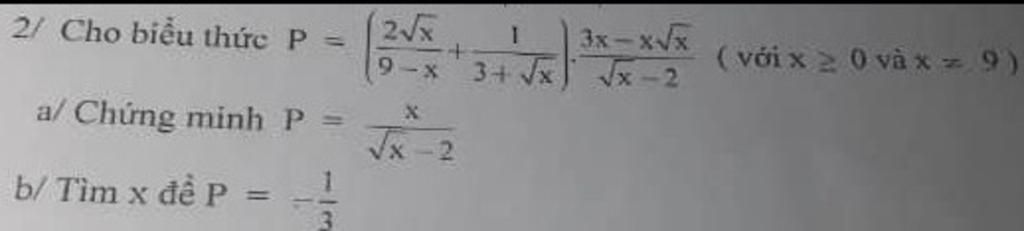 2/ Cho biểu thức P = (2√x/(9 − x) + 1/(3 + √x)) . (3x − x√x)/(√x − 2) ( với x ≥ 0 và x ≠ 9 )
a/ Chứng minh P = x/(√x − 2)
b/ Tìm x để P = −1/3